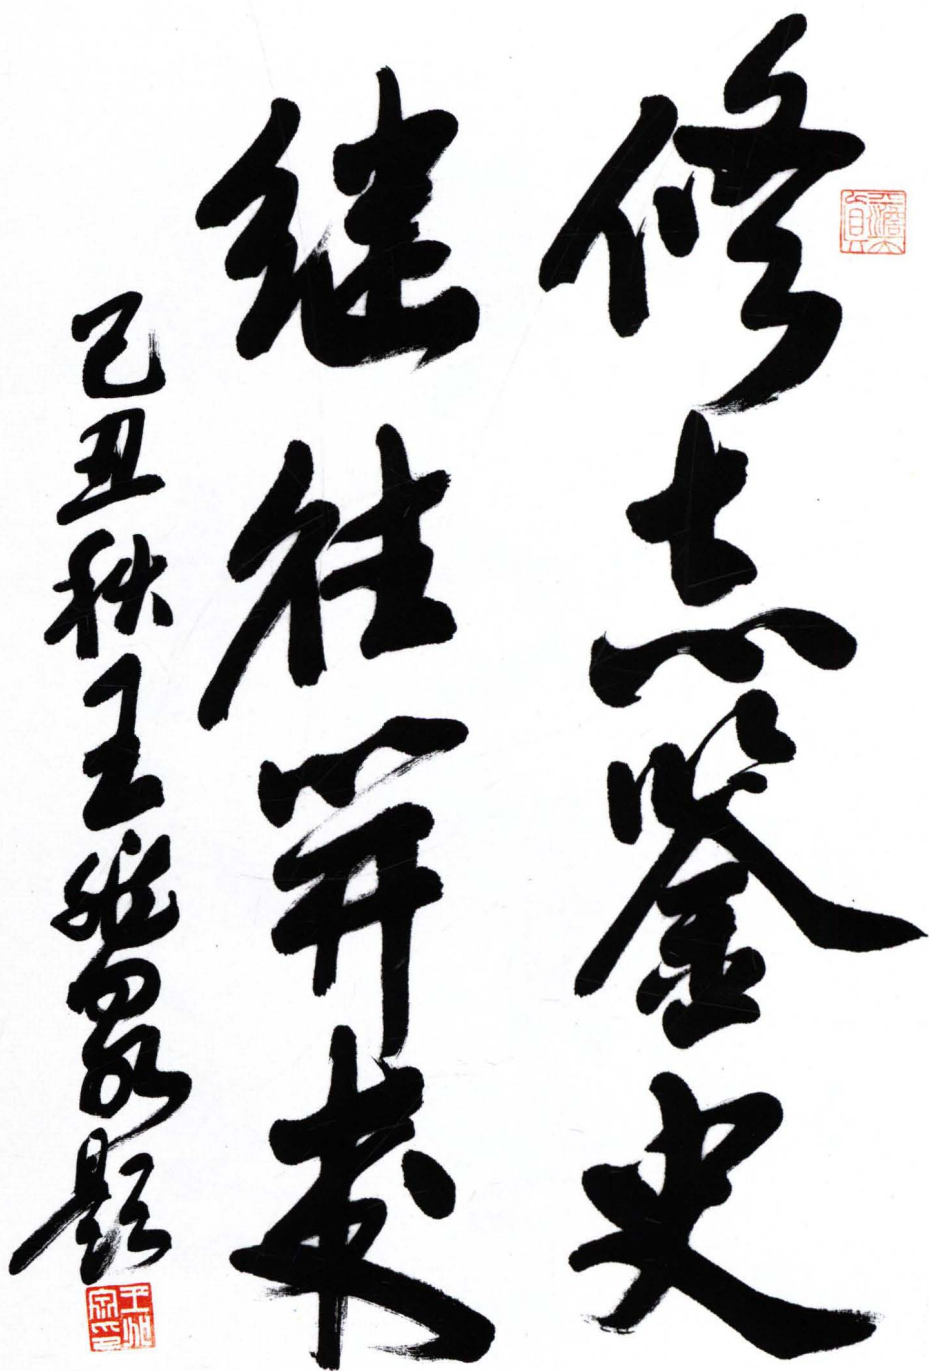 修志鉴史
继往开来
己丑秋王题